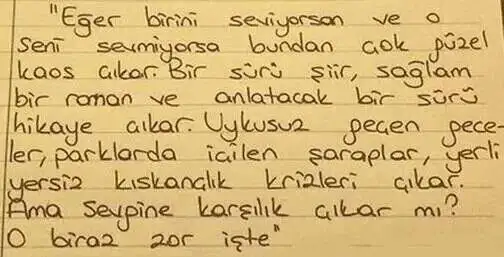 "Eğer birini seviyorsan ve o
seni sevmiyorsa bundan çok güzel
kaos çıkar. Bir sürü şiir, sağlam
bir roman ve anlatacak bir sürü
hikaye çıkar. Uykusuz geçen gece-
ler, parklarda içilen şaraplar, yerli
yersiz kıskançlık krizleri çıkar.
Ama sevgine karşılık çıkar mı?
O biraz zor işte"